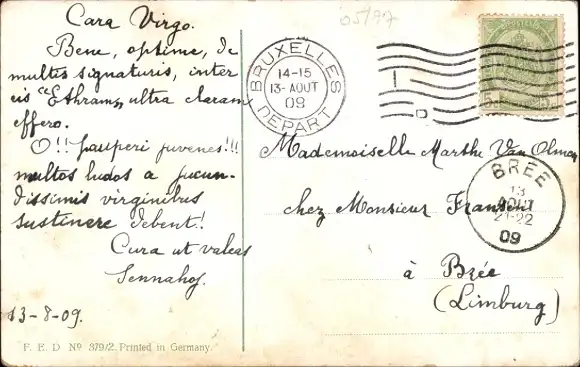 05/97
Cara Virgo.
Bene, optime, de
multis signaturis, inter
eis "Ethram" ultra claram
effero.
O!! pauperi juvenes!!!
multos ludos a jucun-
dissimis virginibus
sustinere debent!
Cura ut valeas
Sennahoj.
13-8-09.
F. E. D Nº 379/2. Printed in Germany.
BRUXELLES
14-15
13-AOUT
09
DEPART
Mademoiselle Marthe Van Olmen
chez Monsieur Fransen
à Brée
(Limburg)
BRÉE
13
AOUT
21-22
09